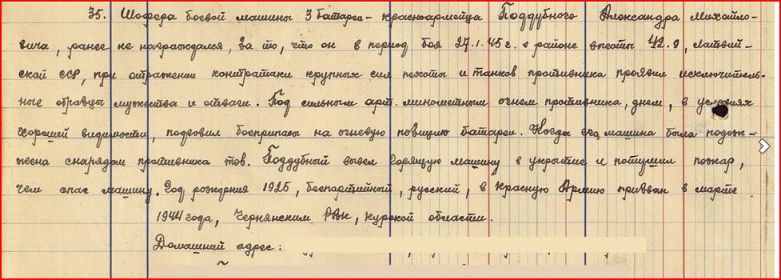 35. Шофера боевой машины 3 батареи - красноармейца Поддубного Александра Михайло-
вича, ранее не награждался, За то, что он в период боя 27.1.45 г. в районе высоты 42.9, Латвий-
ской ССР, при отражении контратаки крупных сил пехоты и танков противника проявил исключитель-
ные образцы мужества и отваги. Под сильным арт. минометным огнем противника, днем, в условиях
хорошей видимости, подвозил боеприпасы на огневую позицию батареи. Когда его машина была подож-
жена снарядом противника тов. Поддубный вывел горящую машину в укрытие и потушил пожар,
чем спас машину. Год рождения 1925, беспартийный, русский, в Красную Армию призван в марте
1944 года, Чернянским РВК, курской области.
Домашний адрес: